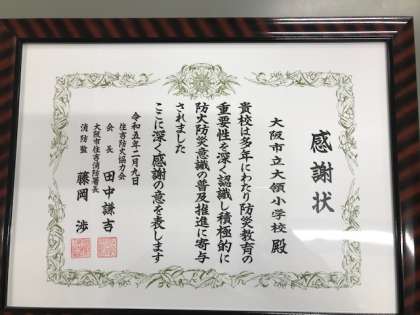 感謝状
大阪市立大領小学校 殿
貴校は多年にわたり防災教育の
重要性を深く認識し積極的に
防火防災意識の普及推進に寄与
されました
ここに深く感謝の意を表します
令和五年二月九日
住吉防火協力会
会長 田中謙吉
大阪市住吉消防署長
消防監 藤岡 渉